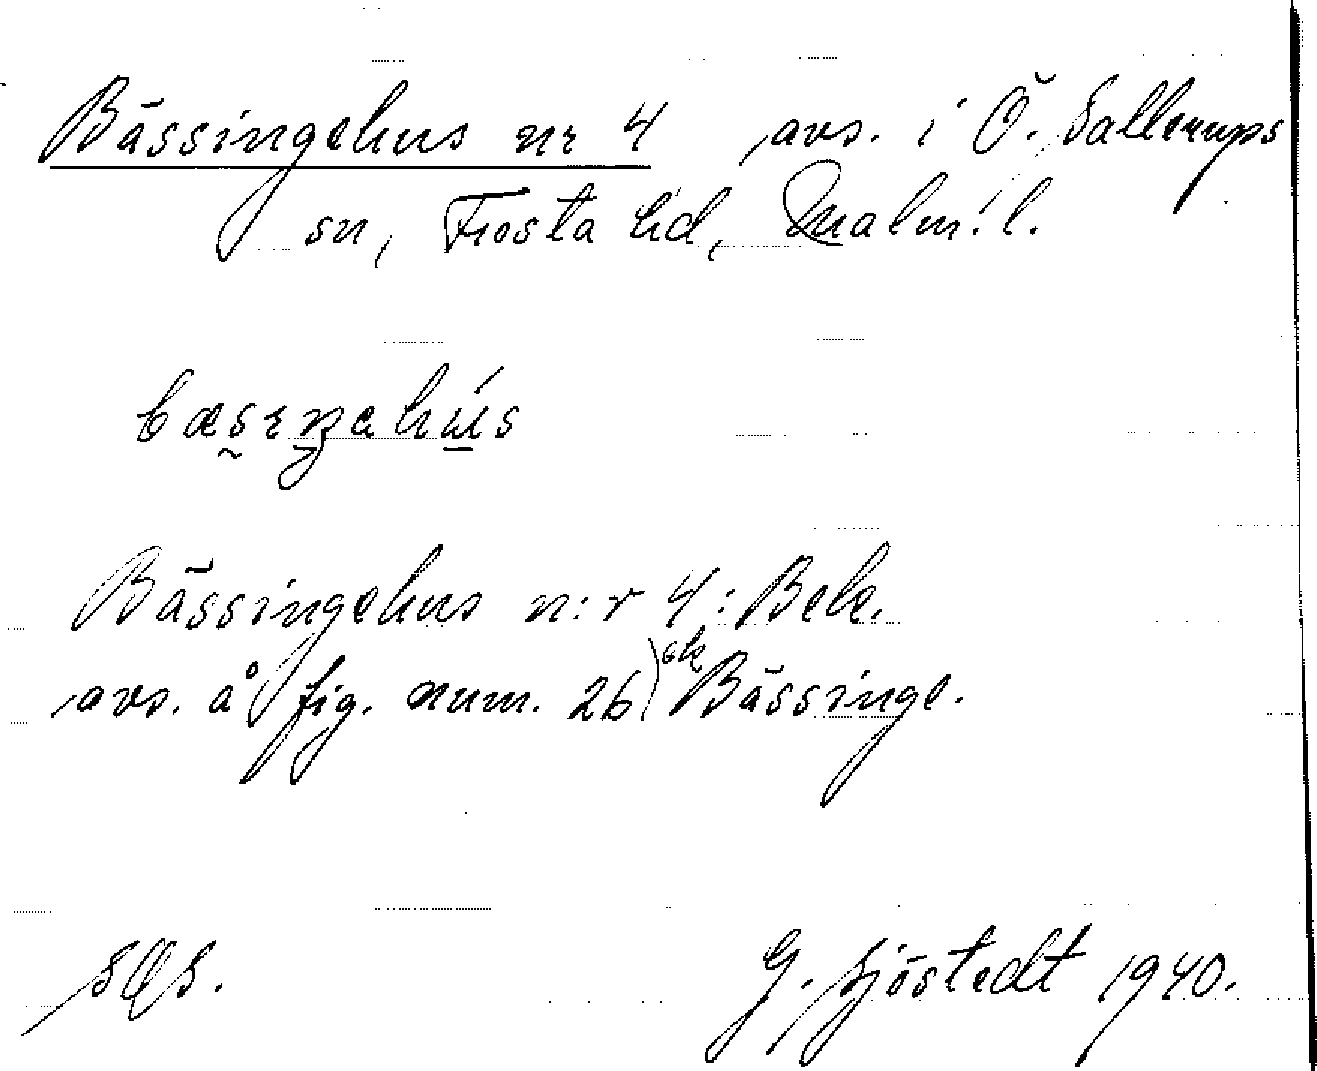 Bässingehus nr 4 avs. i Ö. Sallerups
sn, Frosta hd, Malm. l.
bæsıŋahús
Bässingehus n:r 4: Beb.
avs. å fig. num. 26 Bässinge.
G. Sjöstedt 1940.